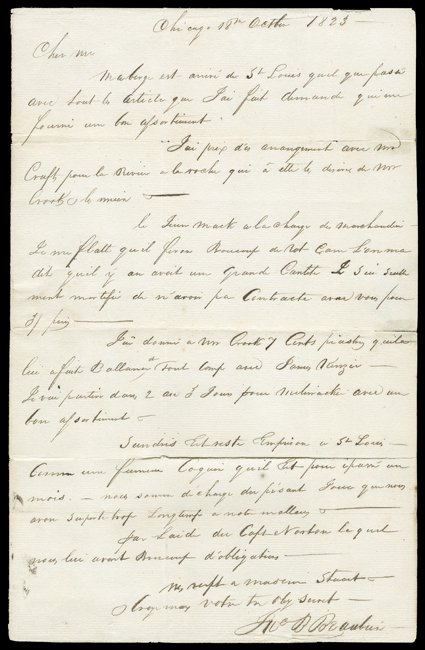 Chicago 18th Octbr 1823
Cher mr
Ma barge est arrivé de St Louis quel que passé
avec tout les article que J'ai fait demand qui me
fourni un bon assortiment
J'ai pris des arrangement avec Mr
Craft pour la Rivier a la roche qui à ette le desire de Mr
Crooks le mien
le Jeun Mack a la charge des marchandise
Je me flatt quel feron Boucoup de Rot Cam L'on ma
dit quil y an avait un Grand Cantité Je Sui Seulle
ment mortifié de n'avoir pa Contracte avec vous pour
J'ai donné a Mr Crook 7 Cents piastre quil
lui a fait Ballance tout Comp avec James Kinzie
Je vai partir dans 2 au 3 Jours pour Milwackie avec un
bon assortiment
Sundris Est resté Emprison a St Louis
Comm un fameux Coquin quel Est pour ipami un
mois. nous somm décharge du pésant Joux que nous
avon Suporté trop Longtemp a notre malleur
Par Laide du Capt Norton le quel
nous lui avont Boucoup d'obligation
Mes respt a madam Stuart
Croye moy votre tre Obj Servt
Jno B Beaubien